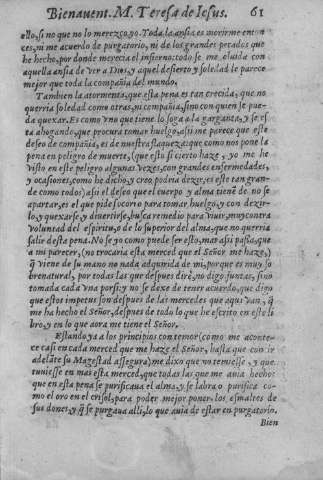 Bienauent. M. Teresa de Iesus. 61
ello, si no que no lo merezco, yo. Toda la ansia es morirme enton
ces, ni me acuerdo de purgatorio, ni de los grandes pecados que
he hecho, por donde merecia el infierno: todo se me oluida con
aquella ansia de ver a Dios, y aquel desierto y soledad le parece
mejor que toda la compañia del mundo.
Tambien la atormenta, que esta pena es tan crecida, que no
querria soledad como otras, ni compañia, sino con quien se pue-
da quexar. Es como vno que tiene la soga a la garganta, y se es
ta ahogando, que procura tomar huelgo, assi me parece que este
desseo de compañia, es de nuestra flaqueza: que como nos pone la
pena en peligro de muerte, (que esto si cierto haze, yo me he
visto en este peligro algunas vezes, con grandes enfermedades,
y ocasiones, como he dicho, y creo podria dezir, es este tan gran-
de como todos) assi el desseo que el cuerpo y alma tienē de no se
apartar, es el que pide socorro para tomar huelgo, y con dezir-
lo, y quexarse, y diuertirse, busca remedio para viuir, muy contra
voluntad del espiritu, o de lo superior del alma, que no querria
salir desta pena. No se yo como puede ser esto, mas assi passa, que
a mi parecer, (no trocaria esta merced que el Señor me haze,)
q̃ viene de su mano no nada adquirida de mi, porque es muy so
brenatural, por todas las que despues dirè, no digo juntas, sino
tomada cada vna por si: y no se dexe de tener acuerdo, que digo
que estos impetus son despues de las mercedes que aqui van, q̃
me ha hecho el Señor, despues de todo lo que he escrito en este li
bro, y en lo que aora me tiene el Señor.
Estando ya a los principios con temor (como me aconte-
ce casi en cada merced que me haze el Señor, hasta que con ir
adelāte su Magestad assegura) me dixo que no temiesse, y que
tuuiesse en mas esta merced, que todas las que me auia hecho:
que en esta pena se purificaua el alma, y se labra o purifica como
el oro en el crisol, para poder mejor poner los esmaltes de
sus dones, y q̃ se purgaua alli, lo que auia de estar en purgatorio.
Bien